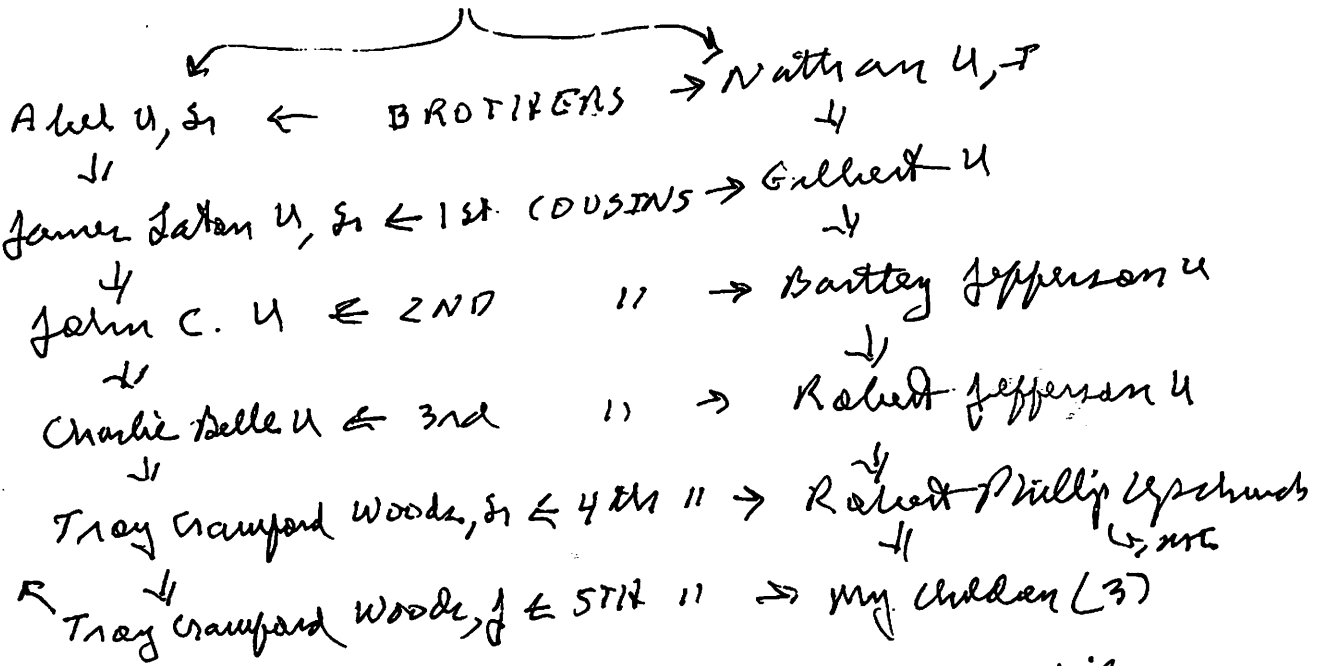 Abel U, Sr ← BROTHERS → Nathan U, I
James Laton U, Sr ← 1st. COUSINS → Gilbert U
John C. U ← 2ND " → Bartley Jefferson U
Charlie Belle U ← 3rd " → Robert Jefferson U
Troy Crawford Woods, Sr ← 4th " → Robert Phillip Upchurch
Troy Crawford Woods, J ← 5TH " → My Children (3)